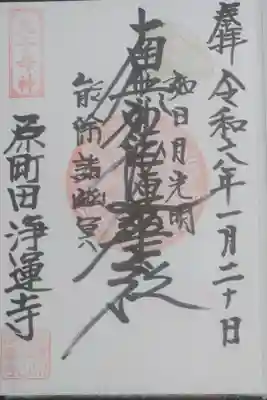 奉拝 令和六年一月二十日
如日月光明
南無妙法蓮華経
能除諸幽冥
原町田 浄運寺